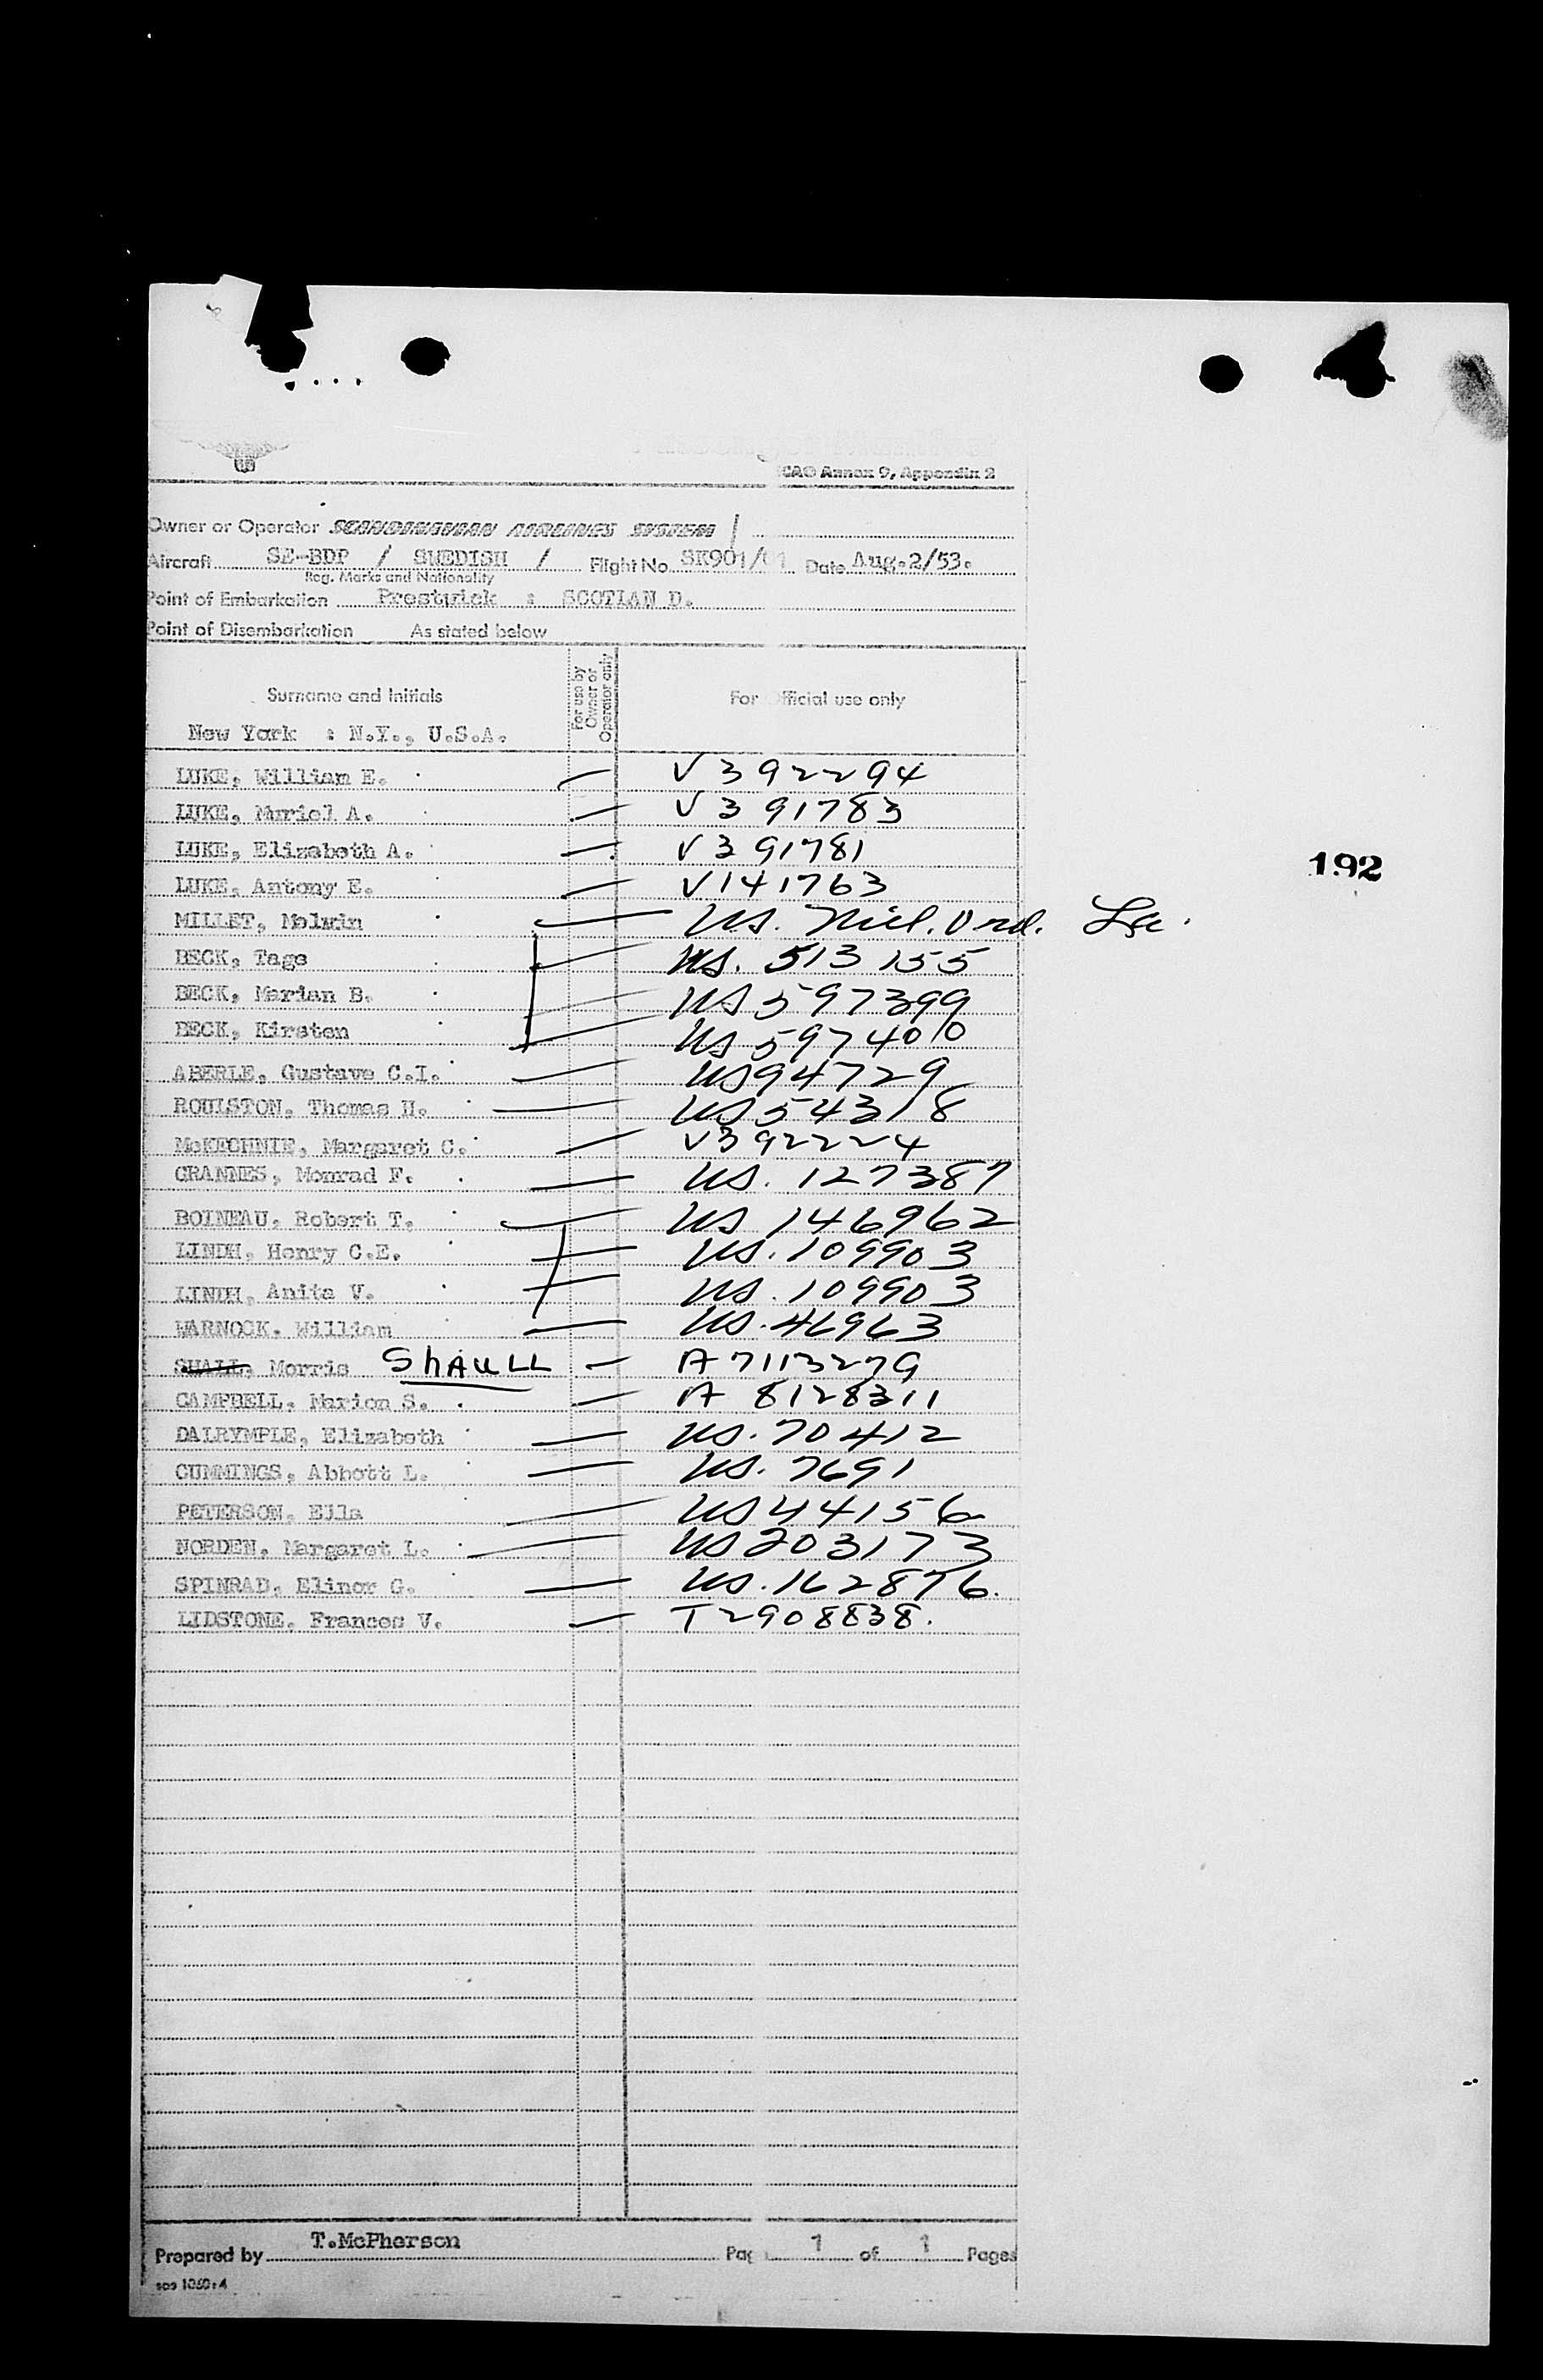 ICAO Annex 9, Appendix 2
Owner or Operator SCANDINAVIAN AIRLINES SYSTEM
Aircraft SE-BDP / SWEDISH / Flight No. SK901/01 Date Aug.2/53.
Reg. Marks and Nationality
Point of Embarkation Prestwick : SCOTLAN D.
Point of Disembarkation As stated below
Surname and Initials For use by Owner or Operator only For Official use only
New York : N.Y., U.S.A.
LUKE, William E. V 392294
LUKE, Muriel A. V 391783
LUKE, Elizabeth A. V 391781
192
LUKE, Antony E. V141763
MILLET, Melwin US. Mil. Ord.
BECK, Tage US. 513155
BECK, Marian B. US 597399
BECK, Kirsten US 597400
ABERLE, Gustave C.I. US94729
ROUISTON, Thomas H. US 54318
McKECHNIE, Margaret C. V392224
GRANNES, Monrad F. US. 127387
BOINEAU, Robert T. US 146962
LINDH, Henry C.E. US. 109903
LINDH, Anita V. US. 109903
WARNOCK, William US. 46963
SHALL, Morris SHAULL A 7113279
CAMPBELL, Marion S. A 8128311
DALRYMPLE, Elizabeth US. 70412
CUMMINGS, Abbott L. US. 7691
PETERSON, Ella US 44156
NORDEN, Margaret L. US 203173
SPINRAD, Elinor G. US. 162876.
LIDSTONE, Frances V. T2908838.
Prepared by T.McPherson Pag 1 of 1 Pages